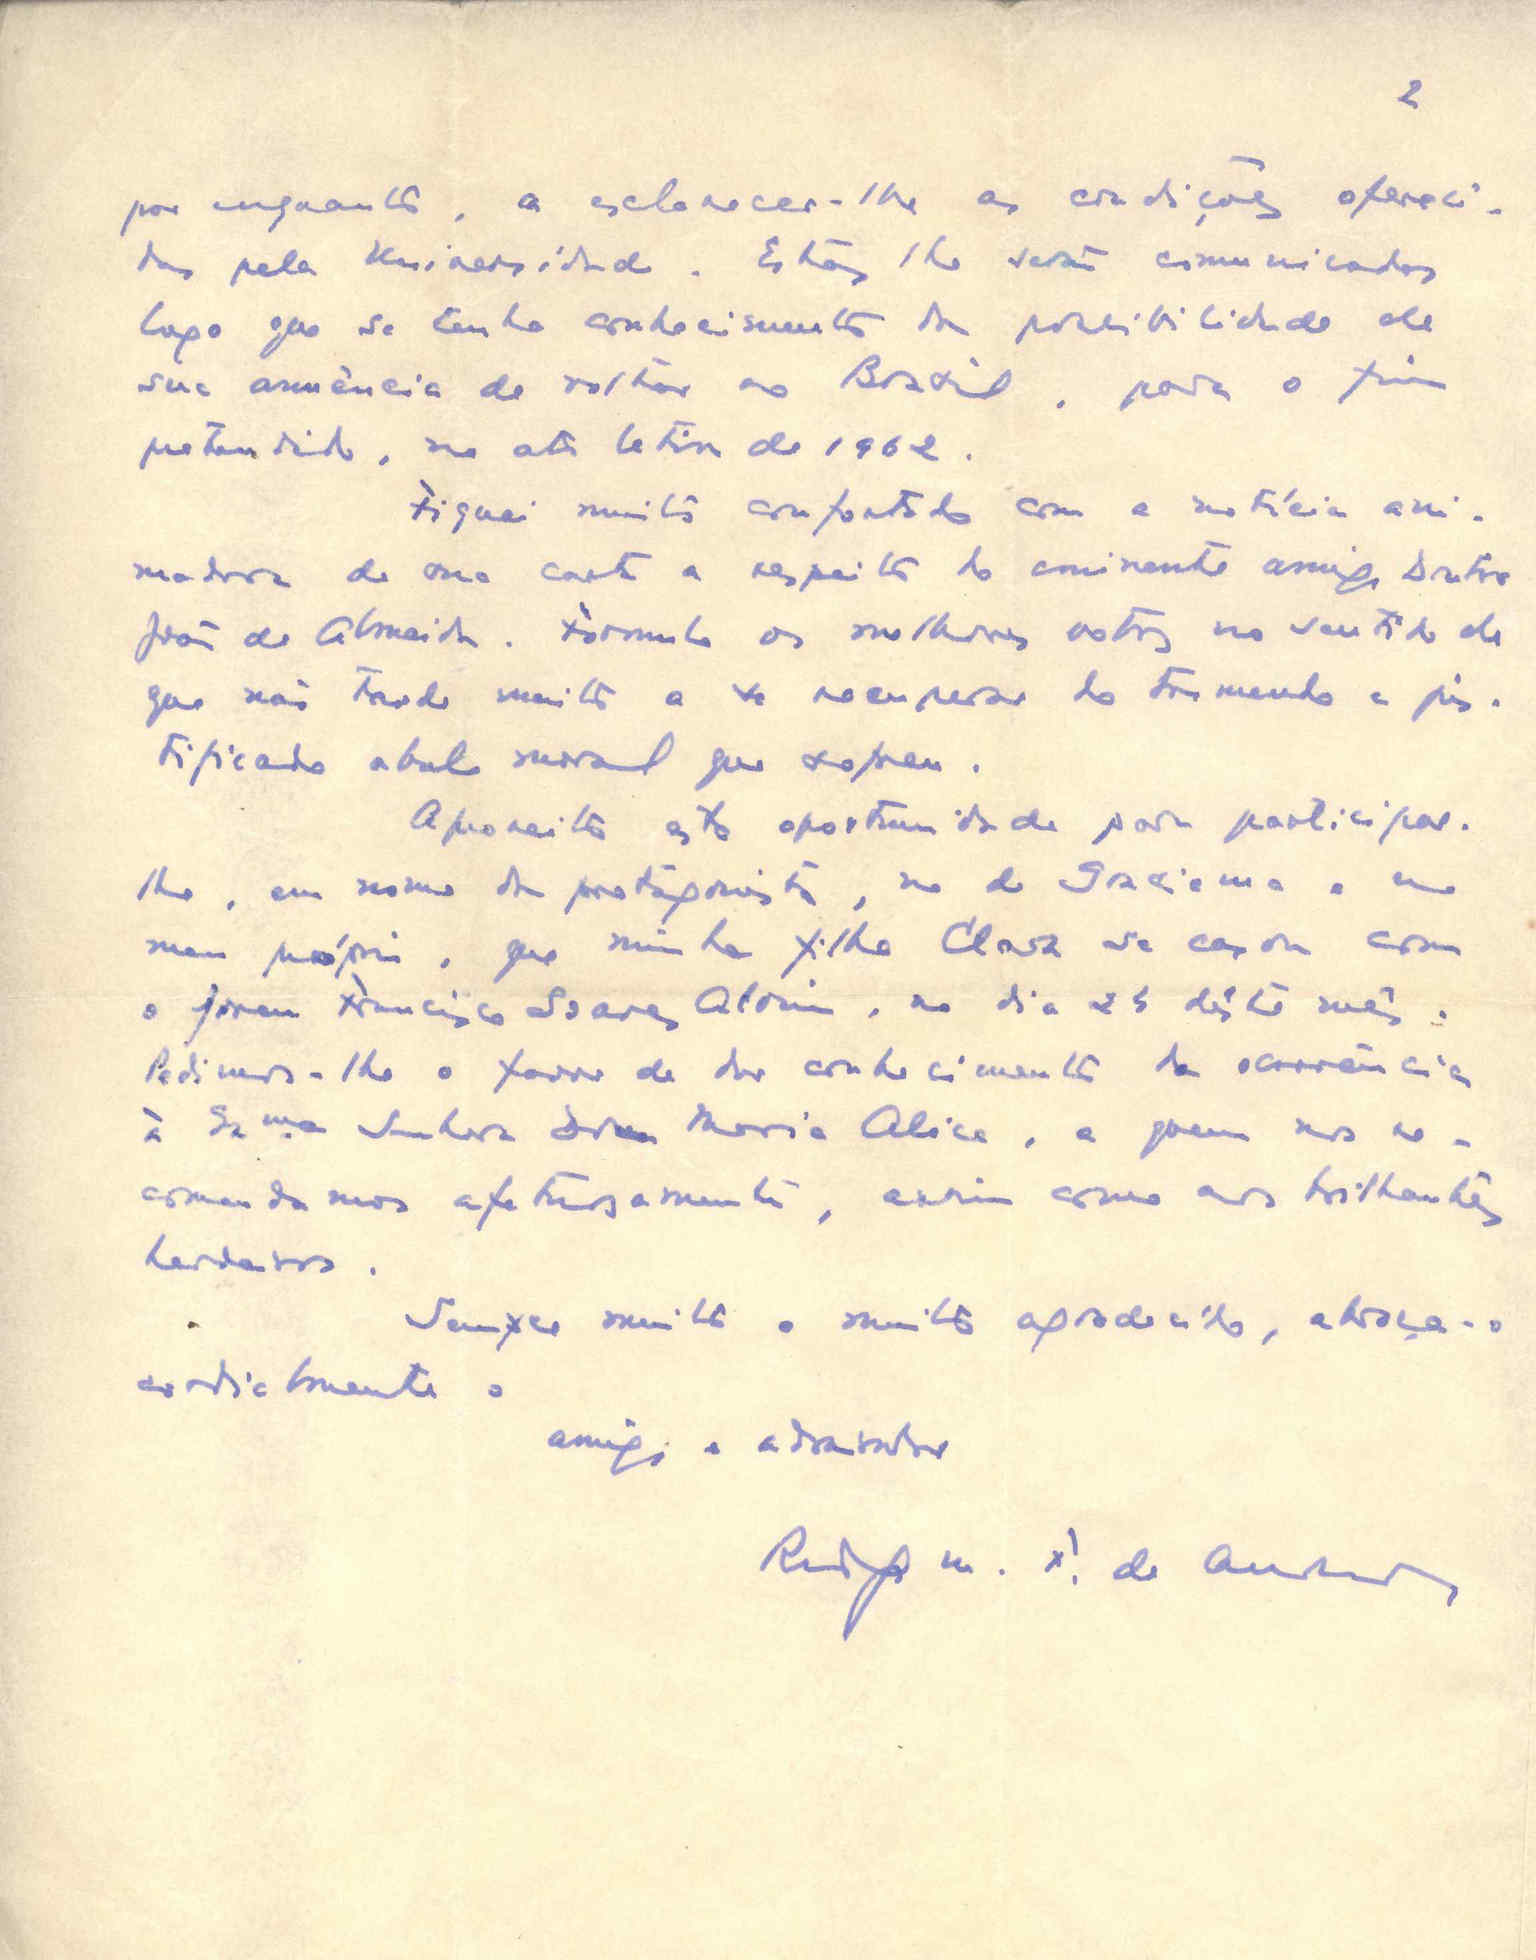 2
por enquanto, a esclarecer-lhe as condições ofereci-
das pela Universidade. Estas lhe serão comunicadas
logo que se tenha conhecimento da possibilidade de
sua anuência de voltar ao Brasil, para o fim
pretendido, no ano letivo de 1962.
Fiquei muito confortado com a notícia ani-
madora de sua carta a respeito do eminente amigo Doutor
João de Almeida. Formulo os melhores votos no sentido de
que não tarde muito a se recuperar do tremendo e jus-
tificado abalo moral que sofreu.
Aproveito esta oportunidade para participar-
lhe, em nome da protagonista, no de Graciema e no
meu próprio, que minha filha Clara se casou com
o jovem Francisco Soares Alvim, no dia 25 dêste mês.
Pedimos-lhe o favor de dar conhecimento da ocorrência
à Exma Senhora Dona Maria Alice, a quem nos re-
comendamos afetuosamente, assim como aos brilhantes
herdeiros.
Sempre muito e muito agradecido, abraça-o
cordialmente o
amigo e admirador
Rodrigo M. F. de Andrade